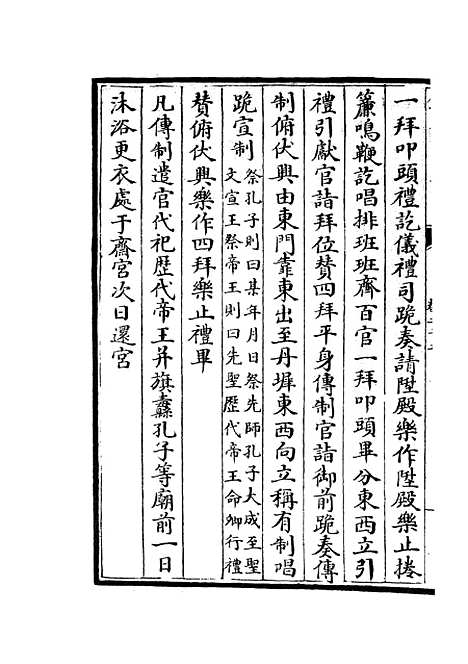 一拜叩頭禮訖儀禮司跪奏請陞殿樂作陞殿樂止捲
簾鳴鞭訖唱排班班齊百官一拜叩頭畢分東西立引
禮引獻官詣拜位贊四拜平身傳制官詣御前跪奏傳
制俯伏興由東門靠東出至丹墀東西向立稱有制唱
跪宣制祭孔子則曰某年月日祭先師孔子大成至聖
文宣王祭帝王則曰先聖歷代帝王命卿行禮
贊俯伏興樂作四拜樂止禮畢
凡傳制遣官代祀歷代帝王并旗纛孔子等廟前一日
沐浴更衣處于齋宮次日還宮